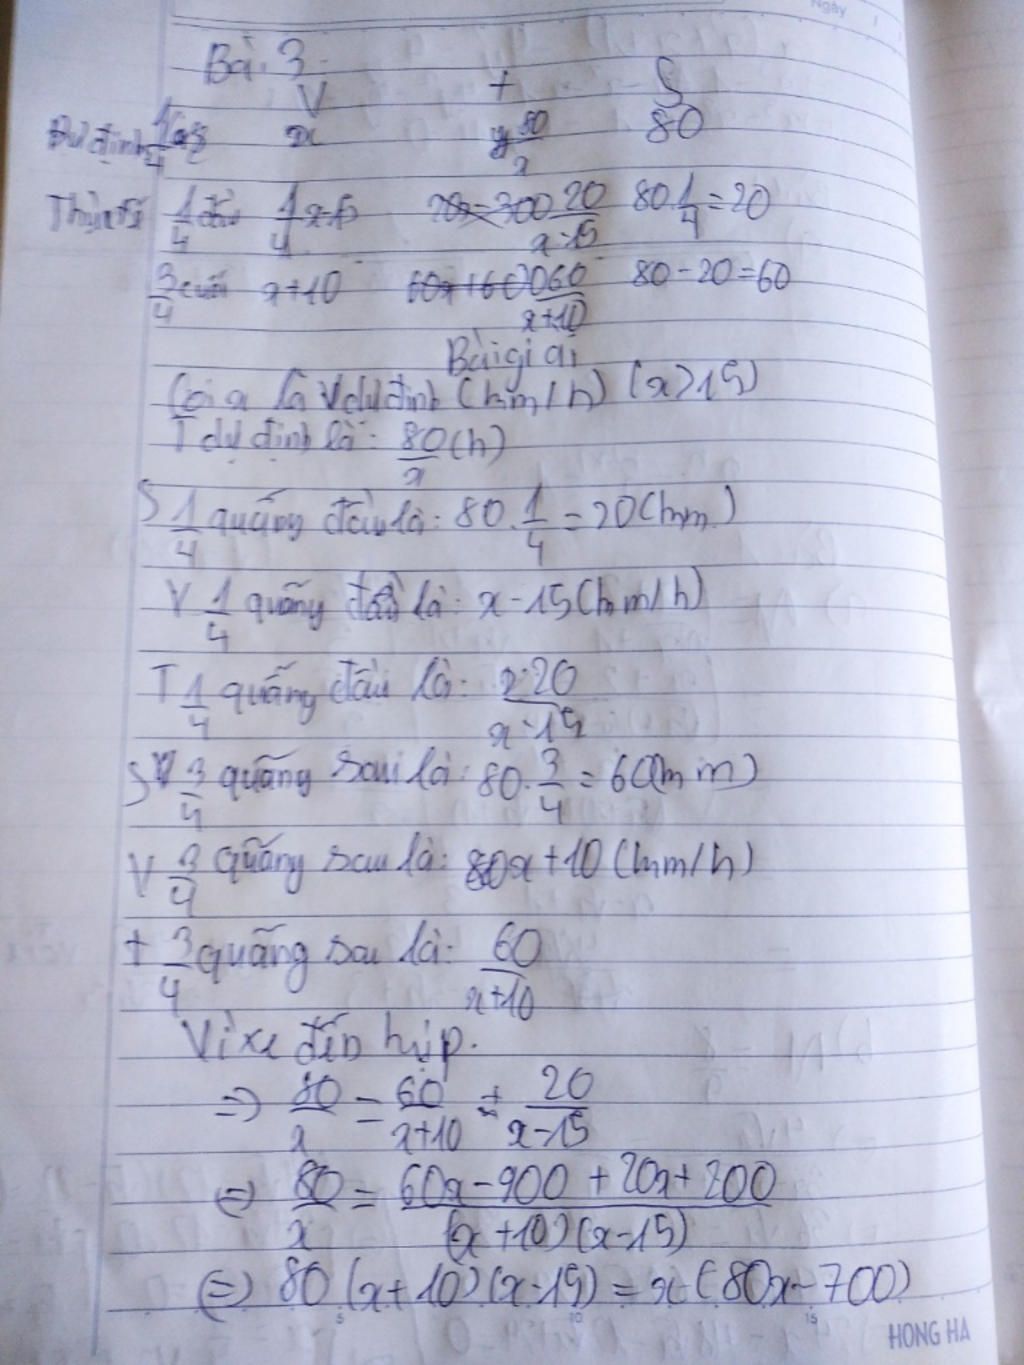 Ngày
Bài 3
V t S
Dự định x 80/x 80
Thực tế 1/4 đầu x-15 20/x-15 80.1/4=20
3/4 cuối x+10 60/x+10 80-20=60
Bài giải
Gọi x là V dự định (km/h) (x>15)
T dự định là: 80/x (h)
S 1/4 quãng đầu là: 80.1/4=20(km)
V 1/4 quãng đầu là: x-15(km/h)
T 1/4 quãng đầu là: 20/x-15
S 3/4 quãng sau là: 80.3/4=60(km)
V 3/4 quãng sau là: x+10(km/h)
t 3/4 quãng sau là: 60/x+10
Vì xe đến kịp.
=> 80/x = 60/x+10 + 20/x-15
<=> 80/x = 60x-900+20x+200/(x+10)(x-15)
<=> 80(x+10)(x-15)=x(80x-700)
5 10 15
HONG HA